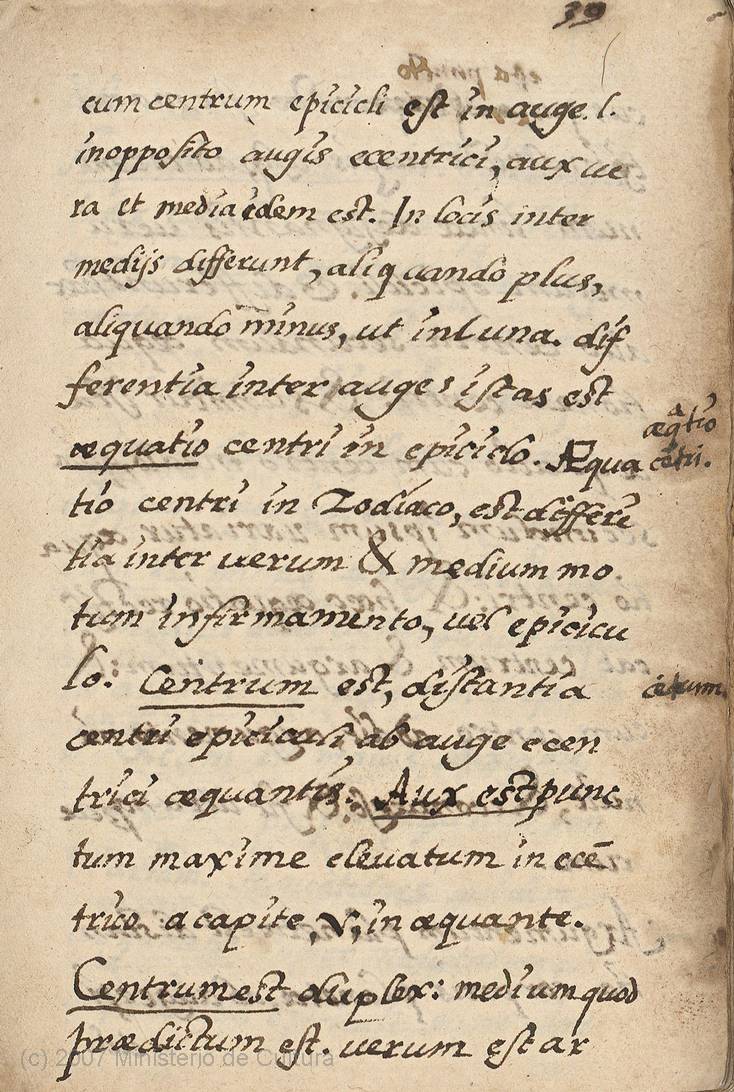 39
cum centrum epicicli est in auge. l.
inopposito augis ecentrici, aux ue
ra et media idem est. In locis inter
medijs differunt, aliquando plus,
aliquando minus, ut in Luna. dif
ferentia inter auges istas est
æquatio centri in epiciclo. Æqua
æq̃tio
cẽtri.
tio centri in Zodíaco, est differẽ
tia inter uerum & medium mo
tum in firmamento, uel epicicu
lo. Centrum est, distantia
cẽtrum.
centri epicicli ab auge ecen
trici æquantis. Aux est punc
tum maxime eleuatum in ecẽ
trico a capite, ♈, in æquante.
Centrum est duplex: medium quod
prædictum est. uerum est ar
(c) 2007 Ministerio de Cultura